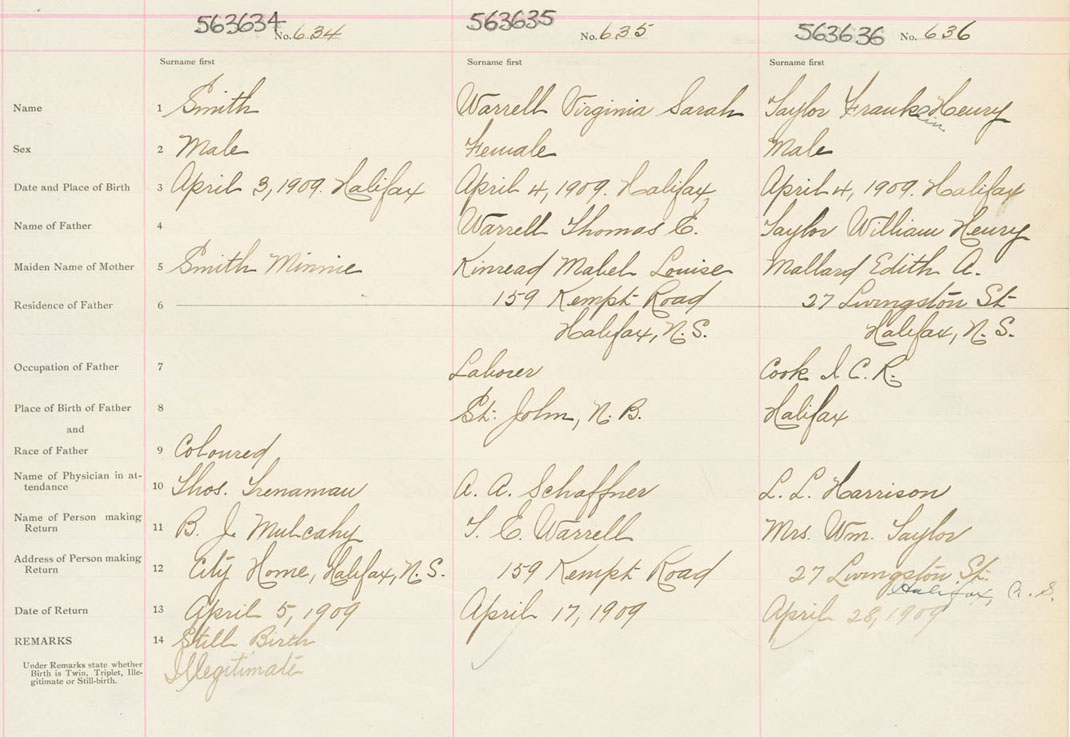 563634 No. 634 563635 No. 635 563636 No. 636
Surname first Surname first Surname first
Name 1 Smith Warrell Virginia Sarah Taylor Franklin Henry
Sex 2 Male Female Male
Date and Place of Birth 3 April 3, 1909. Halifax April 4, 1909. Halifax April 4, 1909. Halifax
Name of Father 4 Warrell Thomas E. Taylor William Henry
Maiden Name of Mother 5 Smith Minnie Kinread Mabel Louise Mallard Edith A.
Residence of Father 6 159 Kempt Road 27 Livingston St.
Halifax, N.S. Halifax, N.S.
Occupation of Father 7 Laborer Cook I. C. R.
Place of Birth of Father 8 St. John, N.B. Halifax
and
Race of Father 9 Coloured
Name of Physician in at-
tendance 10 Thos. Trenaman A. A. Schaffner L. L. Harrison
Name of Person making
Return 11 B. J. Mulcahy T. E. Warrell Mrs. Wm. Taylor
Address of Person making
Return 12 City Home, Halifax, N.S. 159 Kempt Road 27 Livingston St.
Halifax, N.S.
Date of Return 13 April 5, 1909 April 17, 1909 April 28, 1909
REMARKS 14 Still Birth
Illegitimate
Under Remarks state whether
Birth is Twin, Triplet, Ille-
gitimate or Still-birth.